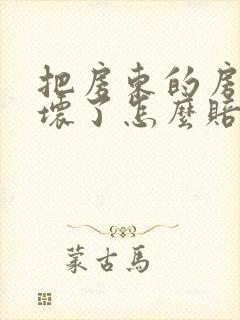 把房东的房
壞了怎麼賠
蒙古馬